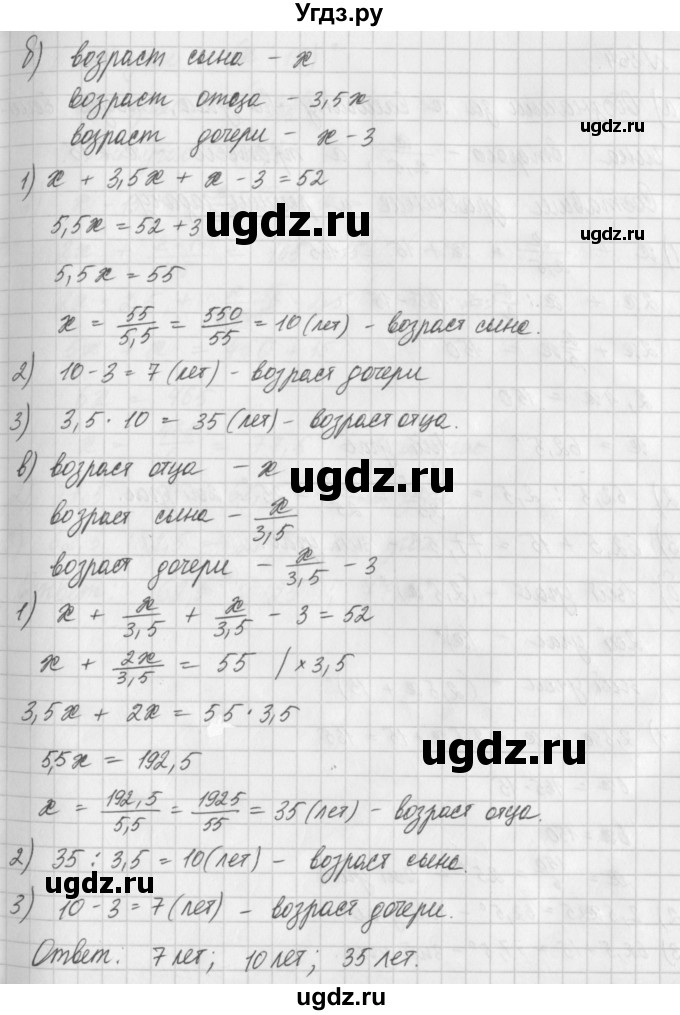 Угдз.ру
б) возраст сына - x
возраст отца - 3,5x
возраст дочери - x - 3
ugdz.ru
1) x + 3,5x + x - 3 = 52
5,5x = 52 + 3
ugdz.ru
ugdz.ru
5,5x = 55
x = 55/5,5 = 550/55 = 10 (лет) - возраст сына.
2) 10 - 3 = 7 (лет) - возраст дочери
3) 3,5 · 10 = 35 (лет) - возраст отца.
в) возраст отца - x
ugdz.ru
возраст сына - x/3,5
возраст дочери - x/3,5 - 3
1) x + x/3,5 + x/3,5 - 3 = 52
x + 2x/3,5 = 55 /×3,5
3,5x + 2x = 55 · 3,5
ugdz.ru
5,5x = 192,5
x = 192,5/5,5 = 1925/55 = 35 (лет) - возраст отца.
2) 35 : 3,5 = 10 (лет) - возраст сына.
ugdz.ru
ugdz.ru
3) 10 - 3 = 7 (лет) - возраст дочери.
Ответ: 7 лет; 10 лет; 35 лет.
ugdz.ru